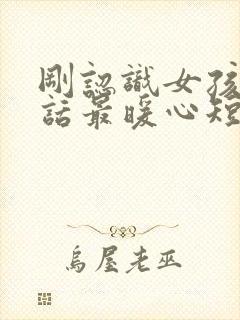 剛認識女孩
話最暖心短
烏屋老巫